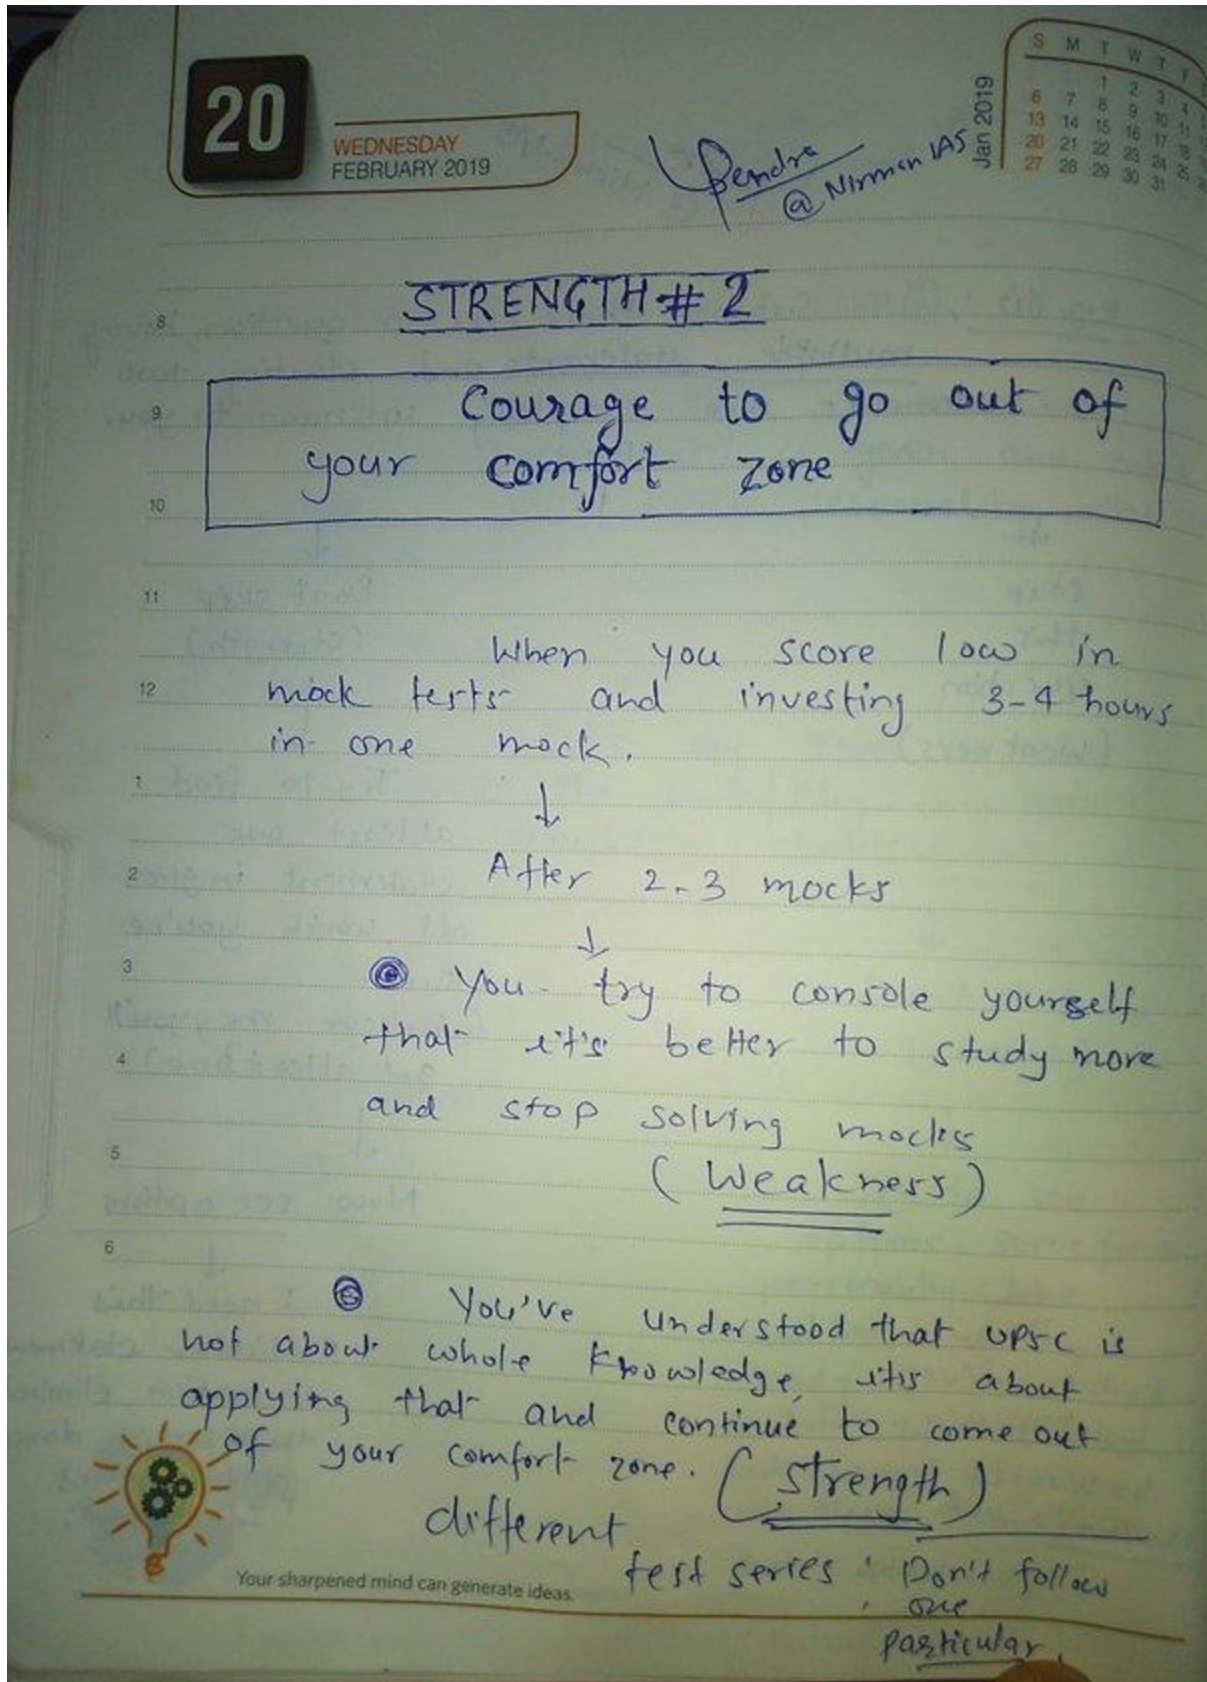 20
WEDNESDAY
FEBRUARY 2019
Jan 2019
S M T W T F
1 2 3 4
6 7 8 9 10 11
13 14 15 16 17 18
20 21 22 23 24 25
27 28 29 30 31
@ Nirman IAS
STRENGTH # 2
8
9 Courage to go out of
your comfort zone
10
11
When you score low in
12 mock tests and investing 3-4 hours
in one mock.
1 ↓
2 After 2-3 mocks
↓
3 You try to console yourself
that it's better to study more
4
and stop solving mocks
5 (Weakness)
6
You've understood that UPSC is
not about whole knowledge, its about
applying that and continue to come out
of your comfort zone. (Strength)
different
test series : Don't follow
one
particular.
Your sharpened mind can generate ideas.